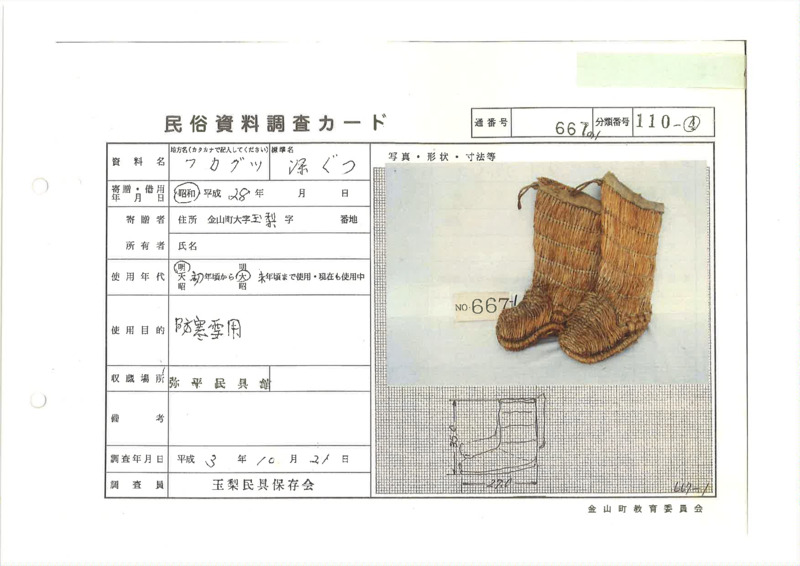 民俗資料調査カード
通番号 667 分類番号 110-④
資料名 地方名(カタカナで記入してください) フカグツ 標準名 深ぐつ
写真・形状・寸法等
寄贈・借用年月日 昭和 平成 28年 月 日
寄贈者 住所 金山町大字玉梨字 番地
所有者 氏名
使用年代 明大昭 初年頃から 明大昭 末年頃まで使用・現在も使用中
NO.667
使用目的 防寒雪用
収蔵場所 弥平民具館
備考
35.0
27.0
調査年月日 平成 3年 10月 21日
調査員 玉梨民具保存会
667-1
金山町教育委員会